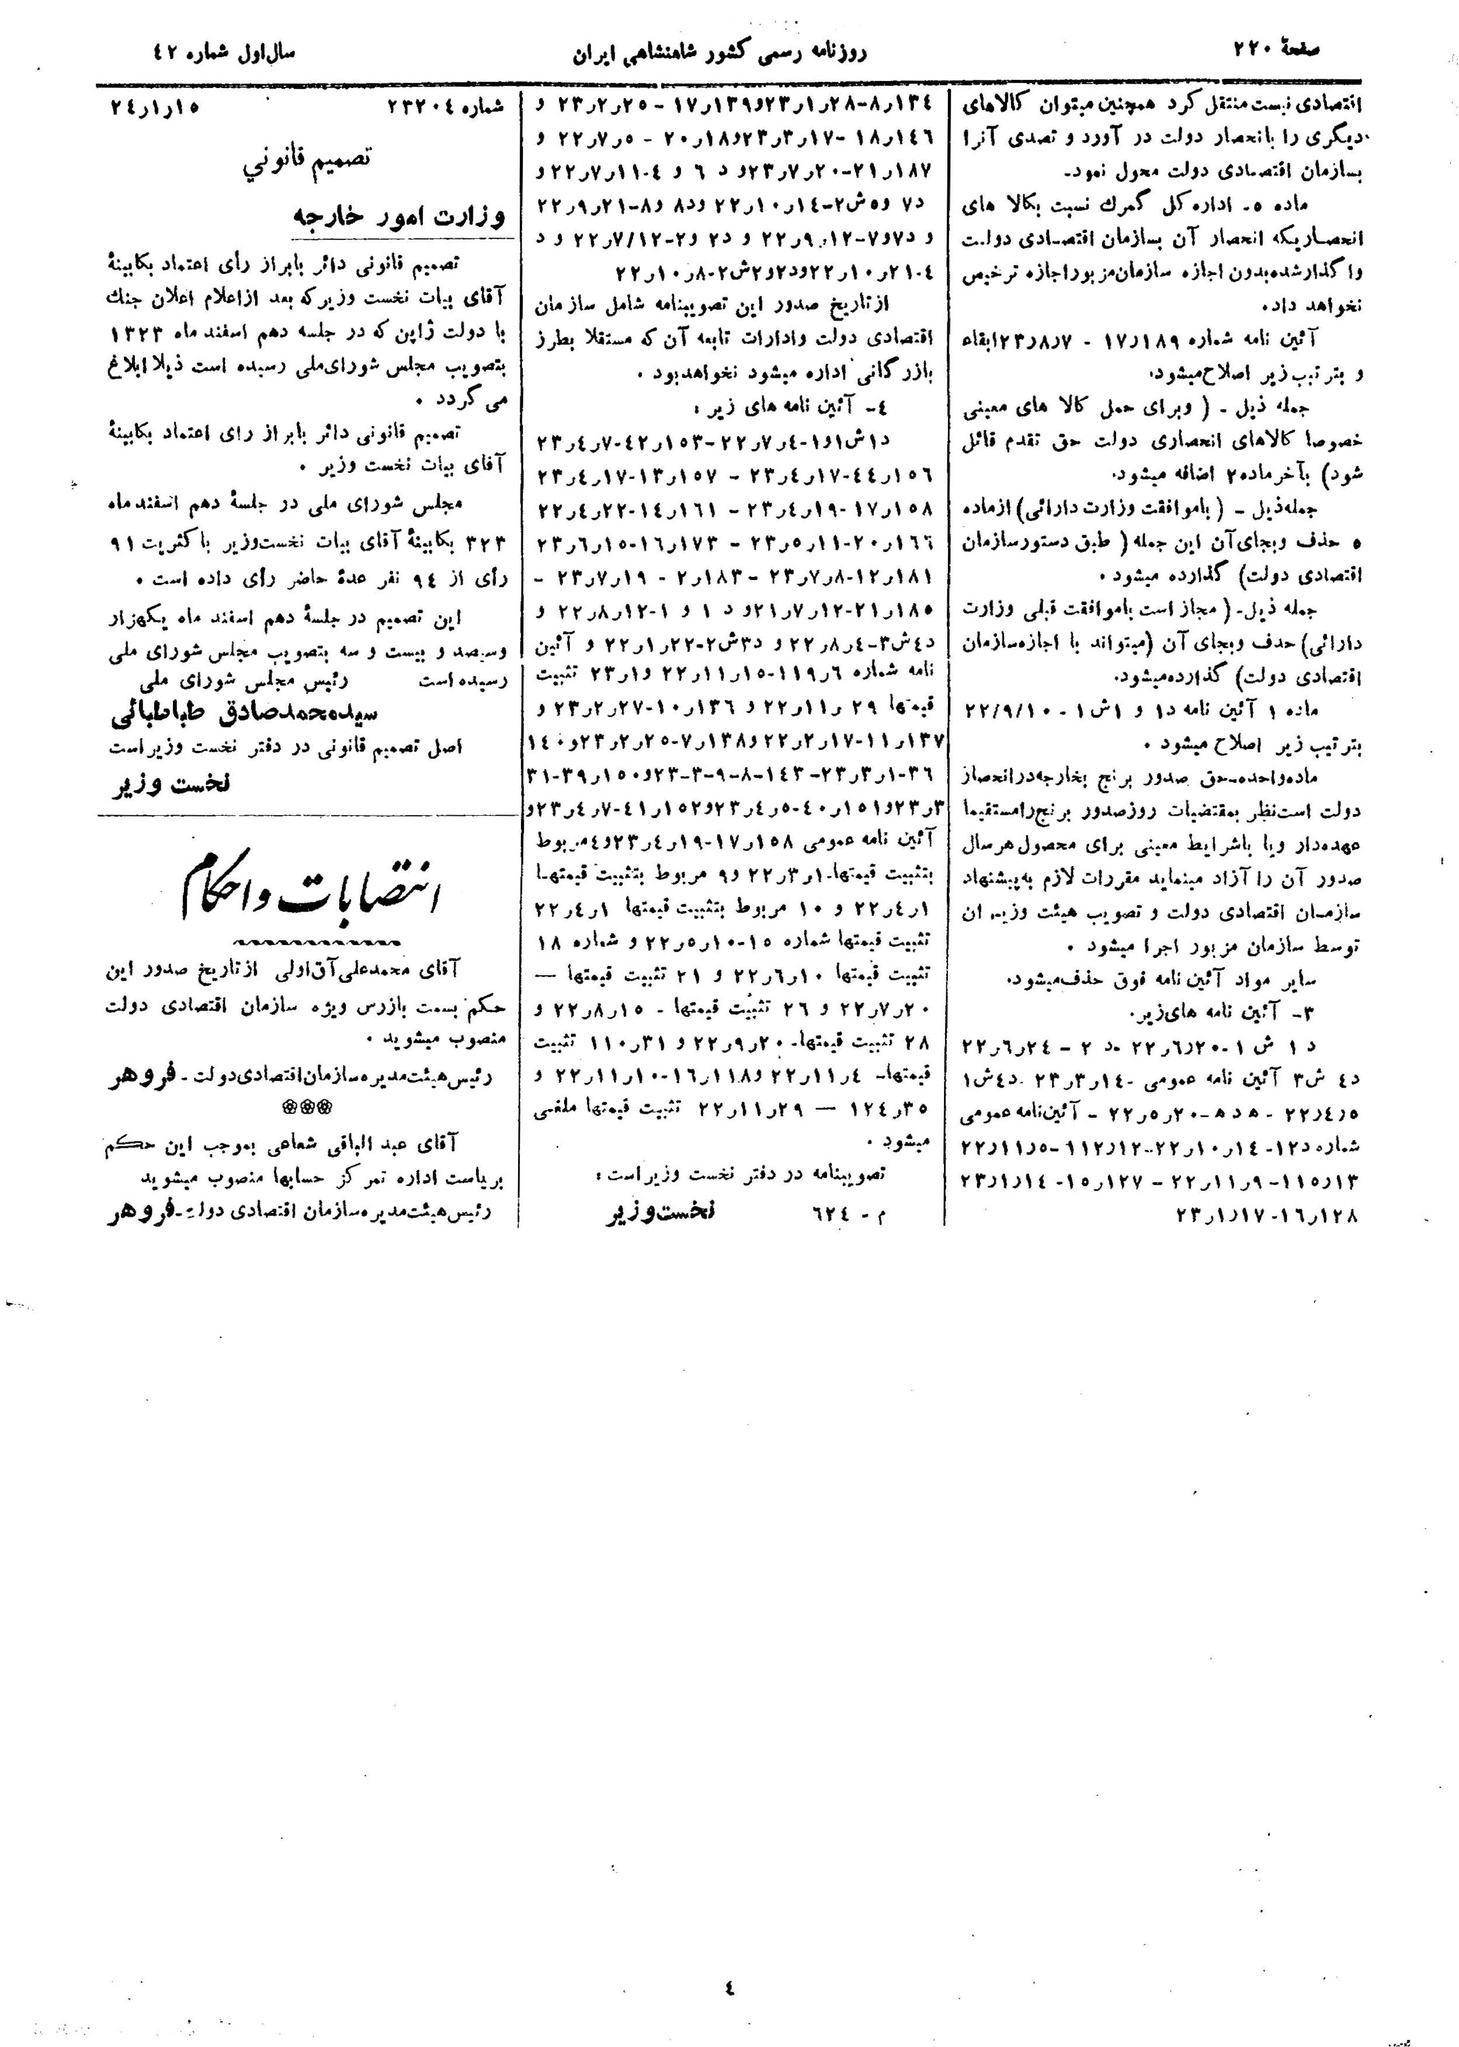 صفحهٔ ۲۲۰
روزنامه رسمی کشور شاهنشاهی ایران
سال اول شماره ٤۲
اقتصادی نیست منتقل کرد همچنین میتوان کالاهای
دیگری را بانحصار دولت در آورد و تصدی آنرا
بسازمان اقتصادی دولت محول نمود.
ماده ٥- اداره کل گمرك نسبت بکالا های
انحصاریکه انحصار آن بسازمان اقتصادی دولت
واگذارشده بدون اجازه سازمان مزبور اجازه ترخیص
نخواهد داد.
آئین نامه شماره ۱۷٫۱۸۹ - ۲۳٫۸٫۷ ابقاء
و بترتیب زیر اصلاح میشود.
جمله ذیل - ( وبرای حمل کالا های معینی
خصوصا کالاهای انحصاری دولت حق تقدم قائل
شود) بآخر ماده ۲ اضافه میشود.
جمله ذیل - ( باموافقت وزارت دارائی) از ماده
٥ حذف وبجای آن این جمله ( طبق دستور سازمان
اقتصادی دولت) گذارده میشود.
جمله ذیل- ( مجاز است باموافقت قبلی وزارت
دارائی) حذف وبجای آن (میتواند با اجازه سازمان
اقتصادی دولت) گذارده میشود.
ماده ۱ آئین نامه د۱ و ۱ش ۱- ۲۲/۹/۱۰
بترتیب زیر اصلاح میشود .
ماده واحده-حق صدور برنج بخارجه در انحصار
دولت است نظر بمقتضیات روز صدور برنج را مستقیما
عهده دار ویا باشرایط معینی برای محصول هر سال
صدور آن را آزاد مینماید مقررات لازم به پیشنهاد
سازمان اقتصادی دولت و تصویب هیئت وزیران
توسط سازمان مزبور اجرا میشود .
سایر مواد آئین نامه فوق حذف میشود.
۳- آئین نامه های زیر.
د ۱ ش ۱-۲۲٫٦٫۲۰ -د ۲ - ۲۲٫٦٫۲٤
د٤ ش۳ آئین نامه عمومی -۲۳٫۳٫۱٤ -د٤ ش۱
۲۲٫٤٫٥ - ۲۲٫٥٫۲۰ - آئین نامه عمومی
شماره د۱۲- ۲۲٫۱۰٫۱٤-۱۱۲٫۱۲-۲۲٫۱۱٫٥
۱۱٥٫۱۳-۲۲٫۱۱٫۹ - ۱٥٫۱۲۷- ۲۳٫۱٫۱٤
۱٦٫۱۲۸- ۲۳٫۱٫۱۷
۸٫۱۳٤-۲۳٫۱٫۲۸و۱۷٫۱۳۹ -۲۳٫۲٫۲٥ و
۱۸٫۱٤٦ -۲۳٫۳٫۱۷و۲۰٫۱۸ - ۲۲٫۷٫٥ و
۲۱٫۱۸۷-۲۳٫۷٫۲۰و د ٦ و ٤-۲۲٫۷٫۱۱و
د۷ و٥ش۲-۲۲٫۱۰٫۱٤ ود۸ و۸-۲۲٫۹٫۲۱
و د۷و۷-۲۲٫۹٫۱۲ و د۲ و۲-۲۲٫۷/۱۲ و د
٤-۲۲٫۱۰٫۲۱ود۲و۲ش۲-۲۲٫۱۰٫۸
ازتاریخ صدور این تصویبنامه شامل سازمان
اقتصادی دولت وادارات تابعه آن که مستقلا بطرز
بازرگانی اداره میشود نخواهدبود .
٤- آئین نامه های زیر :
د۱ش۱و۱-۲۲٫۷٫٤-٤۲٫۱٥۳-۲۳٫٤٫۷
٤٤٫۱٥٦-۲۳٫٤٫۱۷ - ۱۳٫۱٥۷-۲۳٫٤٫۱۷
۱۷٫۱٥۸-۲۳٫٤٫۱۹ - ۱٤٫۱٦۱-۲۲٫٤٫۲۲
۲۰٫۱٦٦-۲۳٫٥٫۱۱ - ۱٦٫۱۷۳-۲۳٫٦٫۱٥
۱۲٫۱۸۱-۲۳٫۷٫۸ - ۲٫۱۸۳ - ۲۳٫۷٫۱۹ -
۲۱٫۱۸٥-۲۱٫۷٫۱۲و د ۱ و ۱-۲۲٫۸٫۱۲ و
د٤ش۳-۲۲٫۸٫٤ و د۳ش۲-۲۲٫۱٫۲۲ و آئین
نامه شماره ۱۱۹٫٦-۲۲٫۱۱٫۱٥ و۲۳٫۱ تثبیت
قیمتها ۲۲٫۱۱٫۲۹ و ۱۰٫۱۳٦-۲۳٫۲٫۲۷ و
۱۱٫۱۳۷-۲۲٫۲٫۱۷و۷٫۱۳۸-۲۳٫۲٫۲٥و۱٤۰
۳٦-۲۳٫۳٫۱-۱٤۳-۸-۹-۳-۲۳و۳۹٫۱٥۰-۳۱
۲۳٫۳و٤۰٫۱٥۱-۲۳٫٤٫٥و٤۱٫۱٥۲-۲۳٫٤٫۷و
آئین نامه عمومی ۱۷٫۱٥۸-۲۳٫٤٫۱۹و٤مربوط
بتثبیت قیمتها-۲۲٫۳٫۱ و۹ مربوط بتثبیت قیمتها
۲۲٫٤٫۱ و ۱۰ مربوط بتثبیت قیمتها ۲۲٫٤٫۱
تثبیت قیمتها شماره ۱٥-۲۲٫٥٫۱۰ و شماره ۱۸
تثبیت قیمتها ۲۲٫٦٫۱۰ و ۲۱ تثبیت قیمتها —
۲۲٫۷٫۲۰ و ۲٦ تثبیت قیمتها - ۲۲٫۸٫۱٥ و
۲۸ تثبیت قیمتها- ۲۲٫۹٫۲۰ و ۱۱۰٫۳۱ تثبیت
قیمتها- ۲۲٫۱۱٫٤ و۱٦٫۱۱۸-۲۲٫۱۱٫۱۰ و
۱۲٤٫۳٥ — ۲۲٫۱۱٫۲۹ تثبیت قیمتها ملغی
میشود .
تصویبنامه در دفتر نخست وزیر است :
م - ٦۲٤ نخست وزیر
شماره ۲۳۲۰٤ ۲٤٫۱٫۱٥
تصمیم قانوني
وزارت امور خارجه
تصمیم قانونی دائر بابراز رأی اعتماد بکابینهٔ
آقای بیات نخست وزیر که بعد ازاعلام اعلان جنك
با دولت ژاپن که در جلسه دهم اسفند ماه ۱۳۲۳
بتصویب مجلس شورای ملی رسیده است ذیلا ابلاغ
می گردد .
تصمیم قانونی دائر بابراز رای اعتماد بکابینهٔ
آقای بیات نخست وزیر .
مجلس شورای ملی در جلسهٔ دهم اسفند ماه
۳۲۳ بکابینهٔ آقای بیات نخست وزیر باکثریت ۹۱
رأی از ۹٤ نفر عدهٔ حاضر رأی داده است .
این تصمیم در جلسهٔ دهم اسفند ماه یکهزار
وسیصد و بیست و سه بتصویب مجلس شورای ملی
رسیده است رئیس مجلس شورای ملی
سیدمحمدصادق طباطبائی
اصل تصمیم قانونی در دفتر نخست وزیر است
نخست وزیر
انتصابات و احکام
آقای محمدعلی آق اولی ازتاریخ صدور این
حکم بسمت بازرس ویژه سازمان اقتصادی دولت
منصوب میشوید .
رئیس هیئت مدیره سازمان اقتصادی دولت - فروهر
آقای عبد الباقی شعاعی بموجب این حکم
بریاست اداره تمرکز حسابها منصوب میشوید
رئیس هیئت مدیره سازمان اقتصادی دولت-فروهر
٤